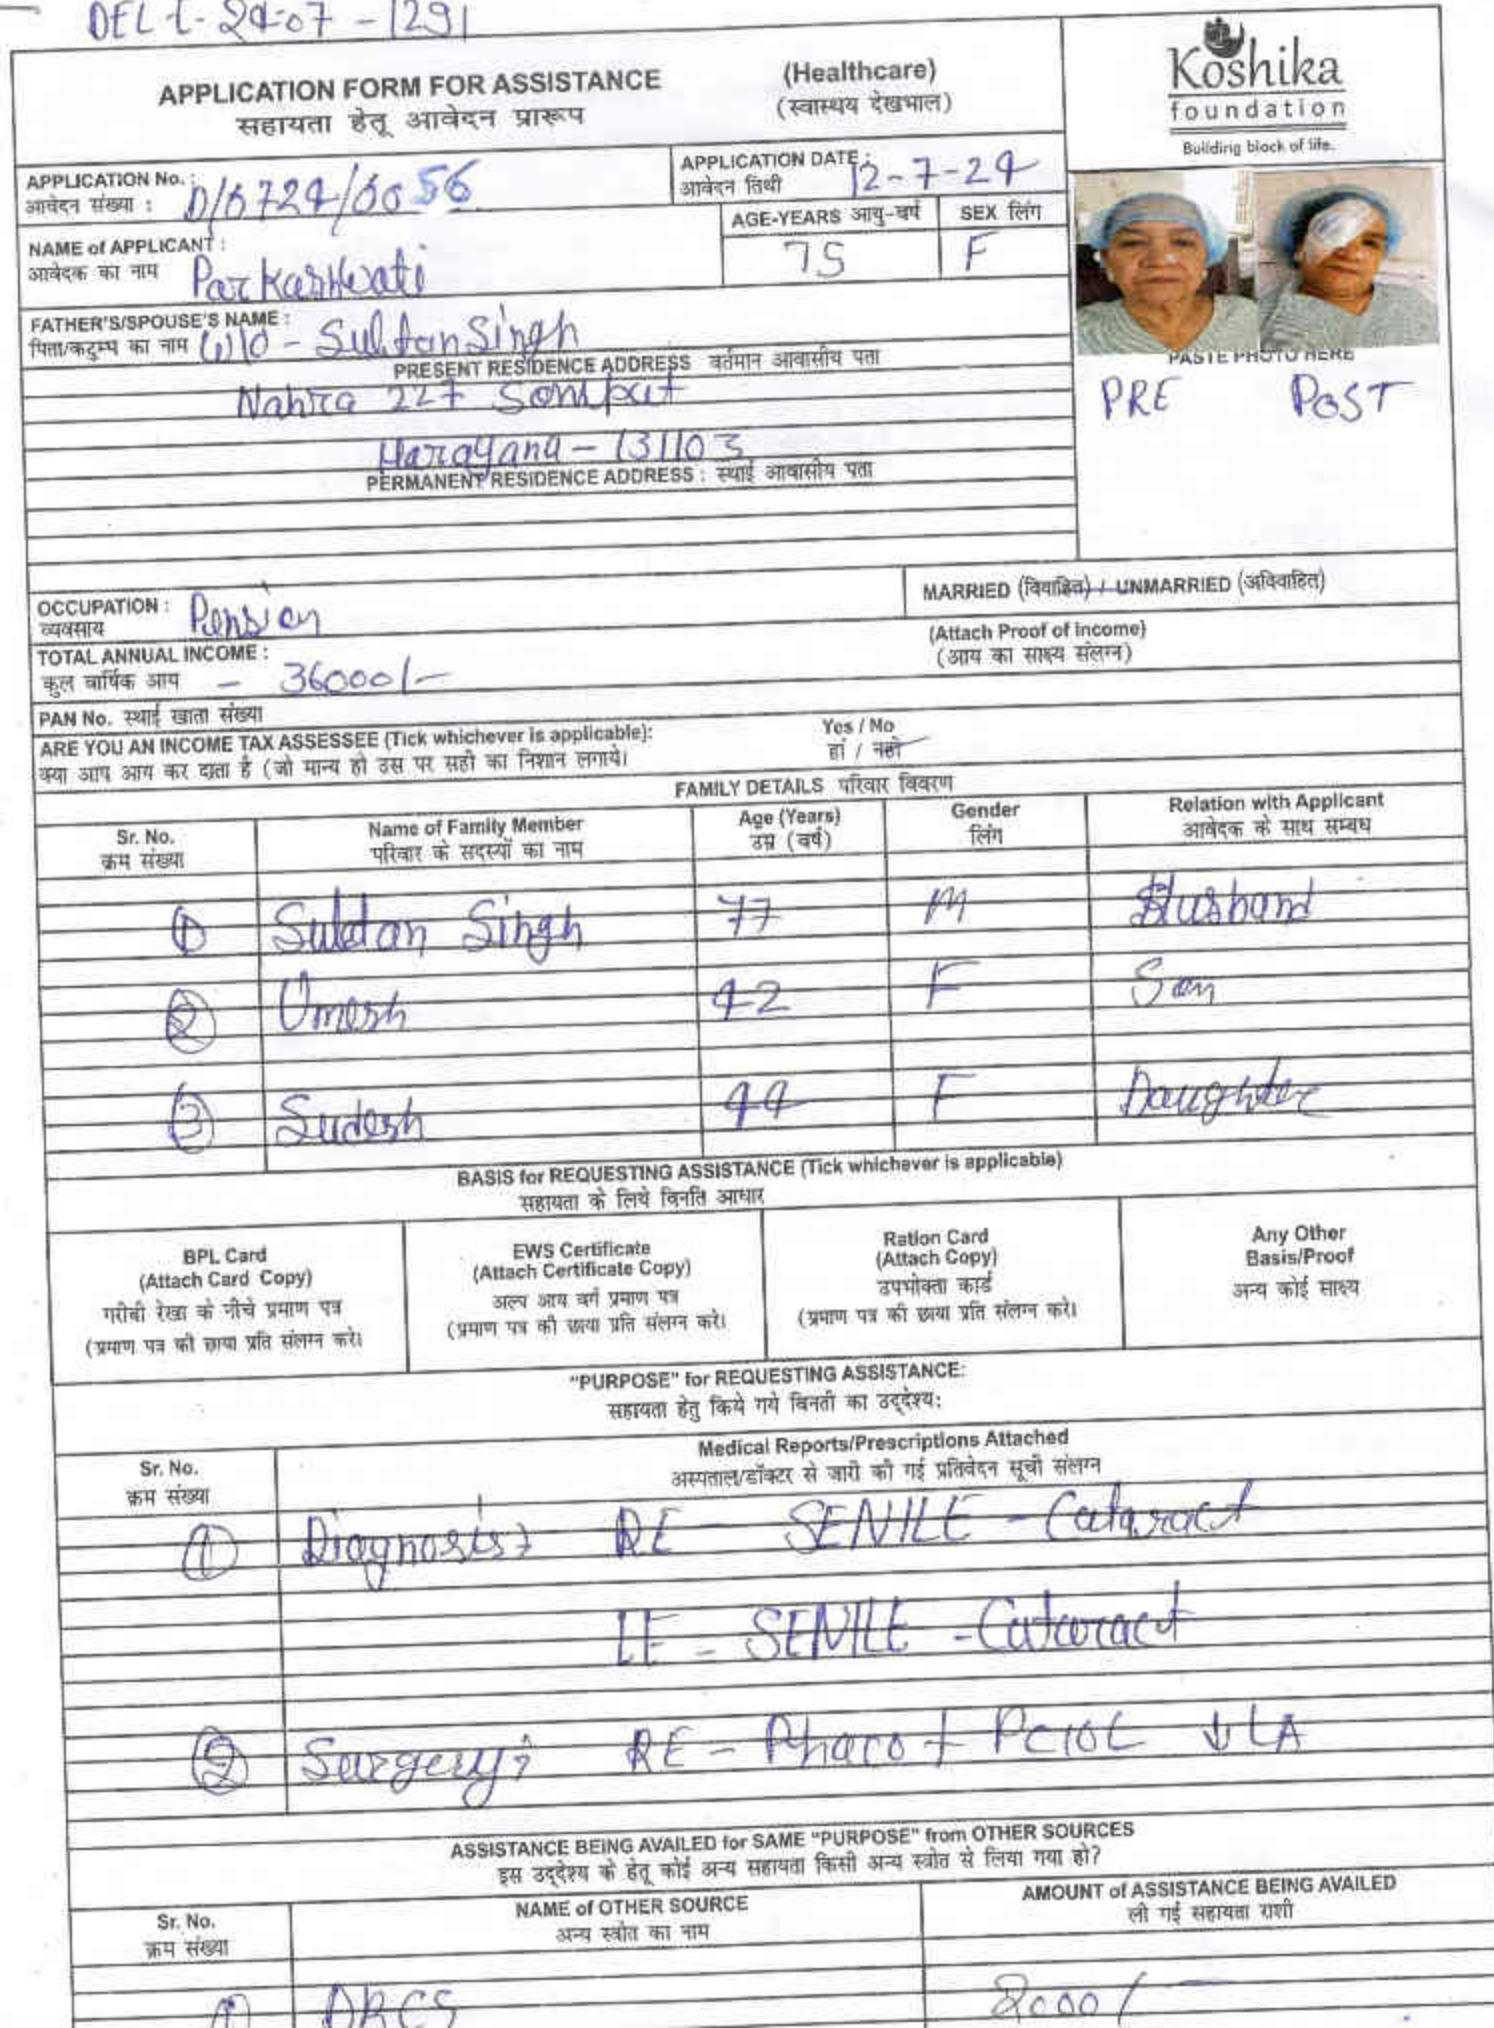 DEL-L-24-07-1291
APPLICATION FORM FOR ASSISTANCE
सहायता हेतू आवेदन प्रारूप
(Healthcare)
(स्वास्थय देखभाल)
Koshika
foundation
Building block of life.
APPLICATION No. :
आवेदन संख्या : D/0724/0056
APPLICATION DATE :
आवेदन तिथी 12-7-24
NAME of APPLICANT :
आवेदक का नाम Parkashwati
AGE-YEARS आयु-वर्ष
75
SEX लिंग
F
FATHER'S/SPOUSE'S NAME :
पिता/कटुम्प का नाम W/O - Sultan Singh
PASTE PHOTO HERE
PRE POST
PRESENT RESIDENCE ADDRESS वर्तमान आवासीय पता
Nahra 227 Sonipat
Harayana - 131103
PERMANENT RESIDENCE ADDRESS : स्थाई आवासीय पता
OCCUPATION :
व्यवसाय Pension
MARRIED (विवाहित) / UNMARRIED (अविवाहित)
TOTAL ANNUAL INCOME :
कुल वार्षिक आय - 36000/-
(Attach Proof of Income)
(आय का साक्ष्य संलग्न)
PAN No. स्थाई खाता संख्या
ARE YOU AN INCOME TAX ASSESSEE (Tick whichever is applicable):
क्या आप आय कर दाता है (जो मान्य हो उस पर सही का निशान लगाये।
Yes / No
हां / नहीं
FAMILY DETAILS परिवार विवरण
Sr. No.
क्रम संख्या
Name of Family Member
परिवार के सदस्यों का नाम
Age (Years)
उम्र (वर्ष)
Gender
लिंग
Relation with Applicant
आवेदक के साथ सम्बध
1 Sultan Singh 77 M Husband
2 Umesh 42 F Son
3 Sudesh 44 F Daughter
BASIS for REQUESTING ASSISTANCE (Tick whichever is applicable)
सहायता के लिये विनति आधार
BPL Card
(Attach Card Copy)
गरीबी रेखा के नीचे प्रमाण पत्र
(प्रमाण पत्र की छाया प्रति संलग्न करे।
EWS Certificate
(Attach Certificate Copy)
अल्प आय वर्ग प्रमाण पत्र
(प्रमाण पत्र की छाया प्रति संलग्न करे।
Ration Card
(Attach Copy)
उपभोक्ता कार्ड
(प्रमाण पत्र की छाया प्रति संलग्न करे।
Any Other
Basis/Proof
अन्य कोई साक्ष्य
"PURPOSE" for REQUESTING ASSISTANCE:
सहायता हेतु किये गये विनती का उद्देश्य:
Sr. No.
क्रम संख्या
Medical Reports/Prescriptions Attached
अस्पताल/डॉक्टर से जारी की गई प्रतिवेदन सूची संलग्न
1 Diagnosis: RE - SENILE - Cataract
LE - SENILE - Cataract
2 Surgery: RE - Phaco + PCIOL ↓ LA
ASSISTANCE BEING AVAILED for SAME "PURPOSE" from OTHER SOURCES
इस उद्देश्य के हेतू कोई अन्य सहायता किसी अन्य स्त्रोत से लिया गया हो?
Sr. No.
क्रम संख्या
NAME of OTHER SOURCE
अन्य स्त्रोत का नाम
AMOUNT of ASSISTANCE BEING AVAILED
ली गई सहायता राशी
1 DBCS 2000/-